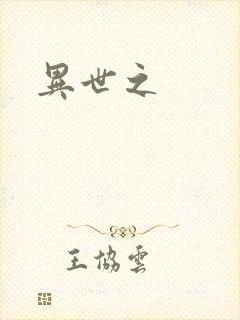 異世之
王協雲